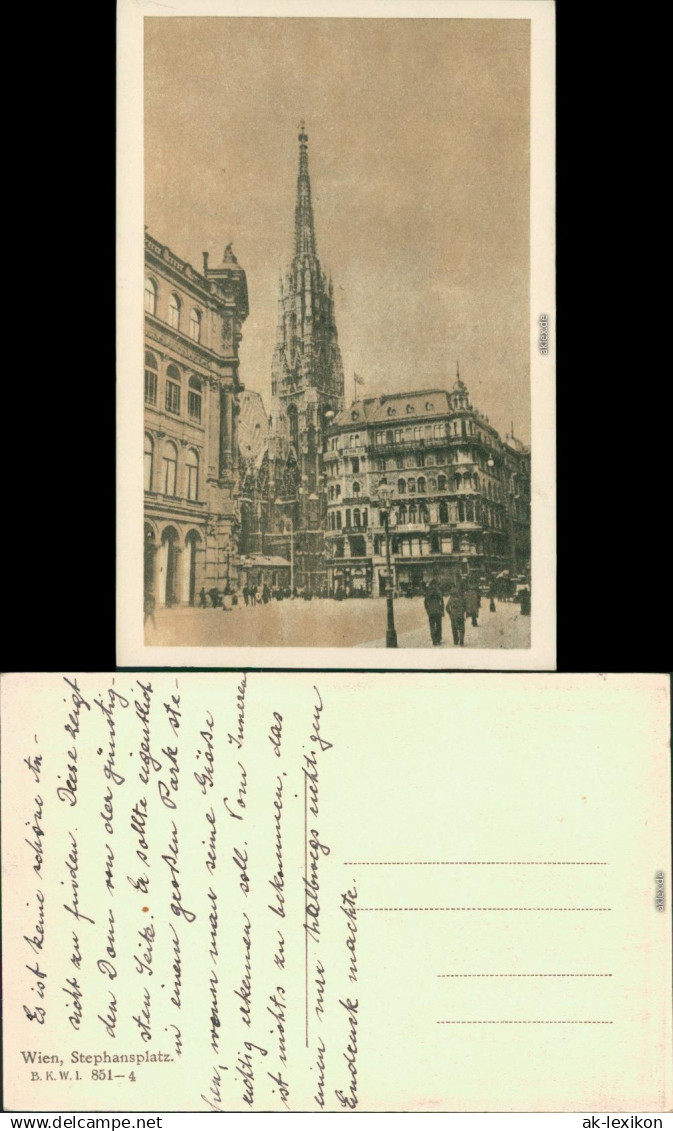 aklex.de
Es ist keine schöne An-
sicht zu finden. Diese zeigt
den Dom von der günstig-
sten Seite. Er sollte eigentlich
in einem großen Park ste-
hen, wenn man seine Größe
richtig erkennen soll. Vom Inneren
ist nichts zu bekommen, das
einen nur halbwegs richtigen
Eindruck machte.
Wien, Stephansplatz.
B. K. W. I. 851—4
aklex.de
delcampe.net
ak-lexikon